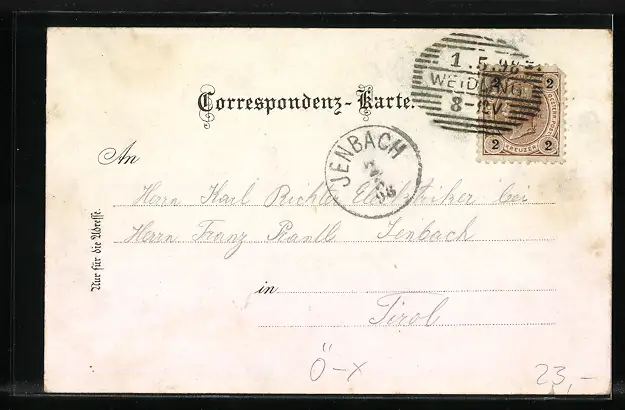 1.5.98
WEIDLING
8-12V
2 2
KREUZER
2 2
Correspondenz-Karte.
JENBACH
98
An
Herrn Karl Richter bei
Herrn Franz Prantl Jenbach
in
Tirol
Nur für die Adresse.
Ö-x
23,-